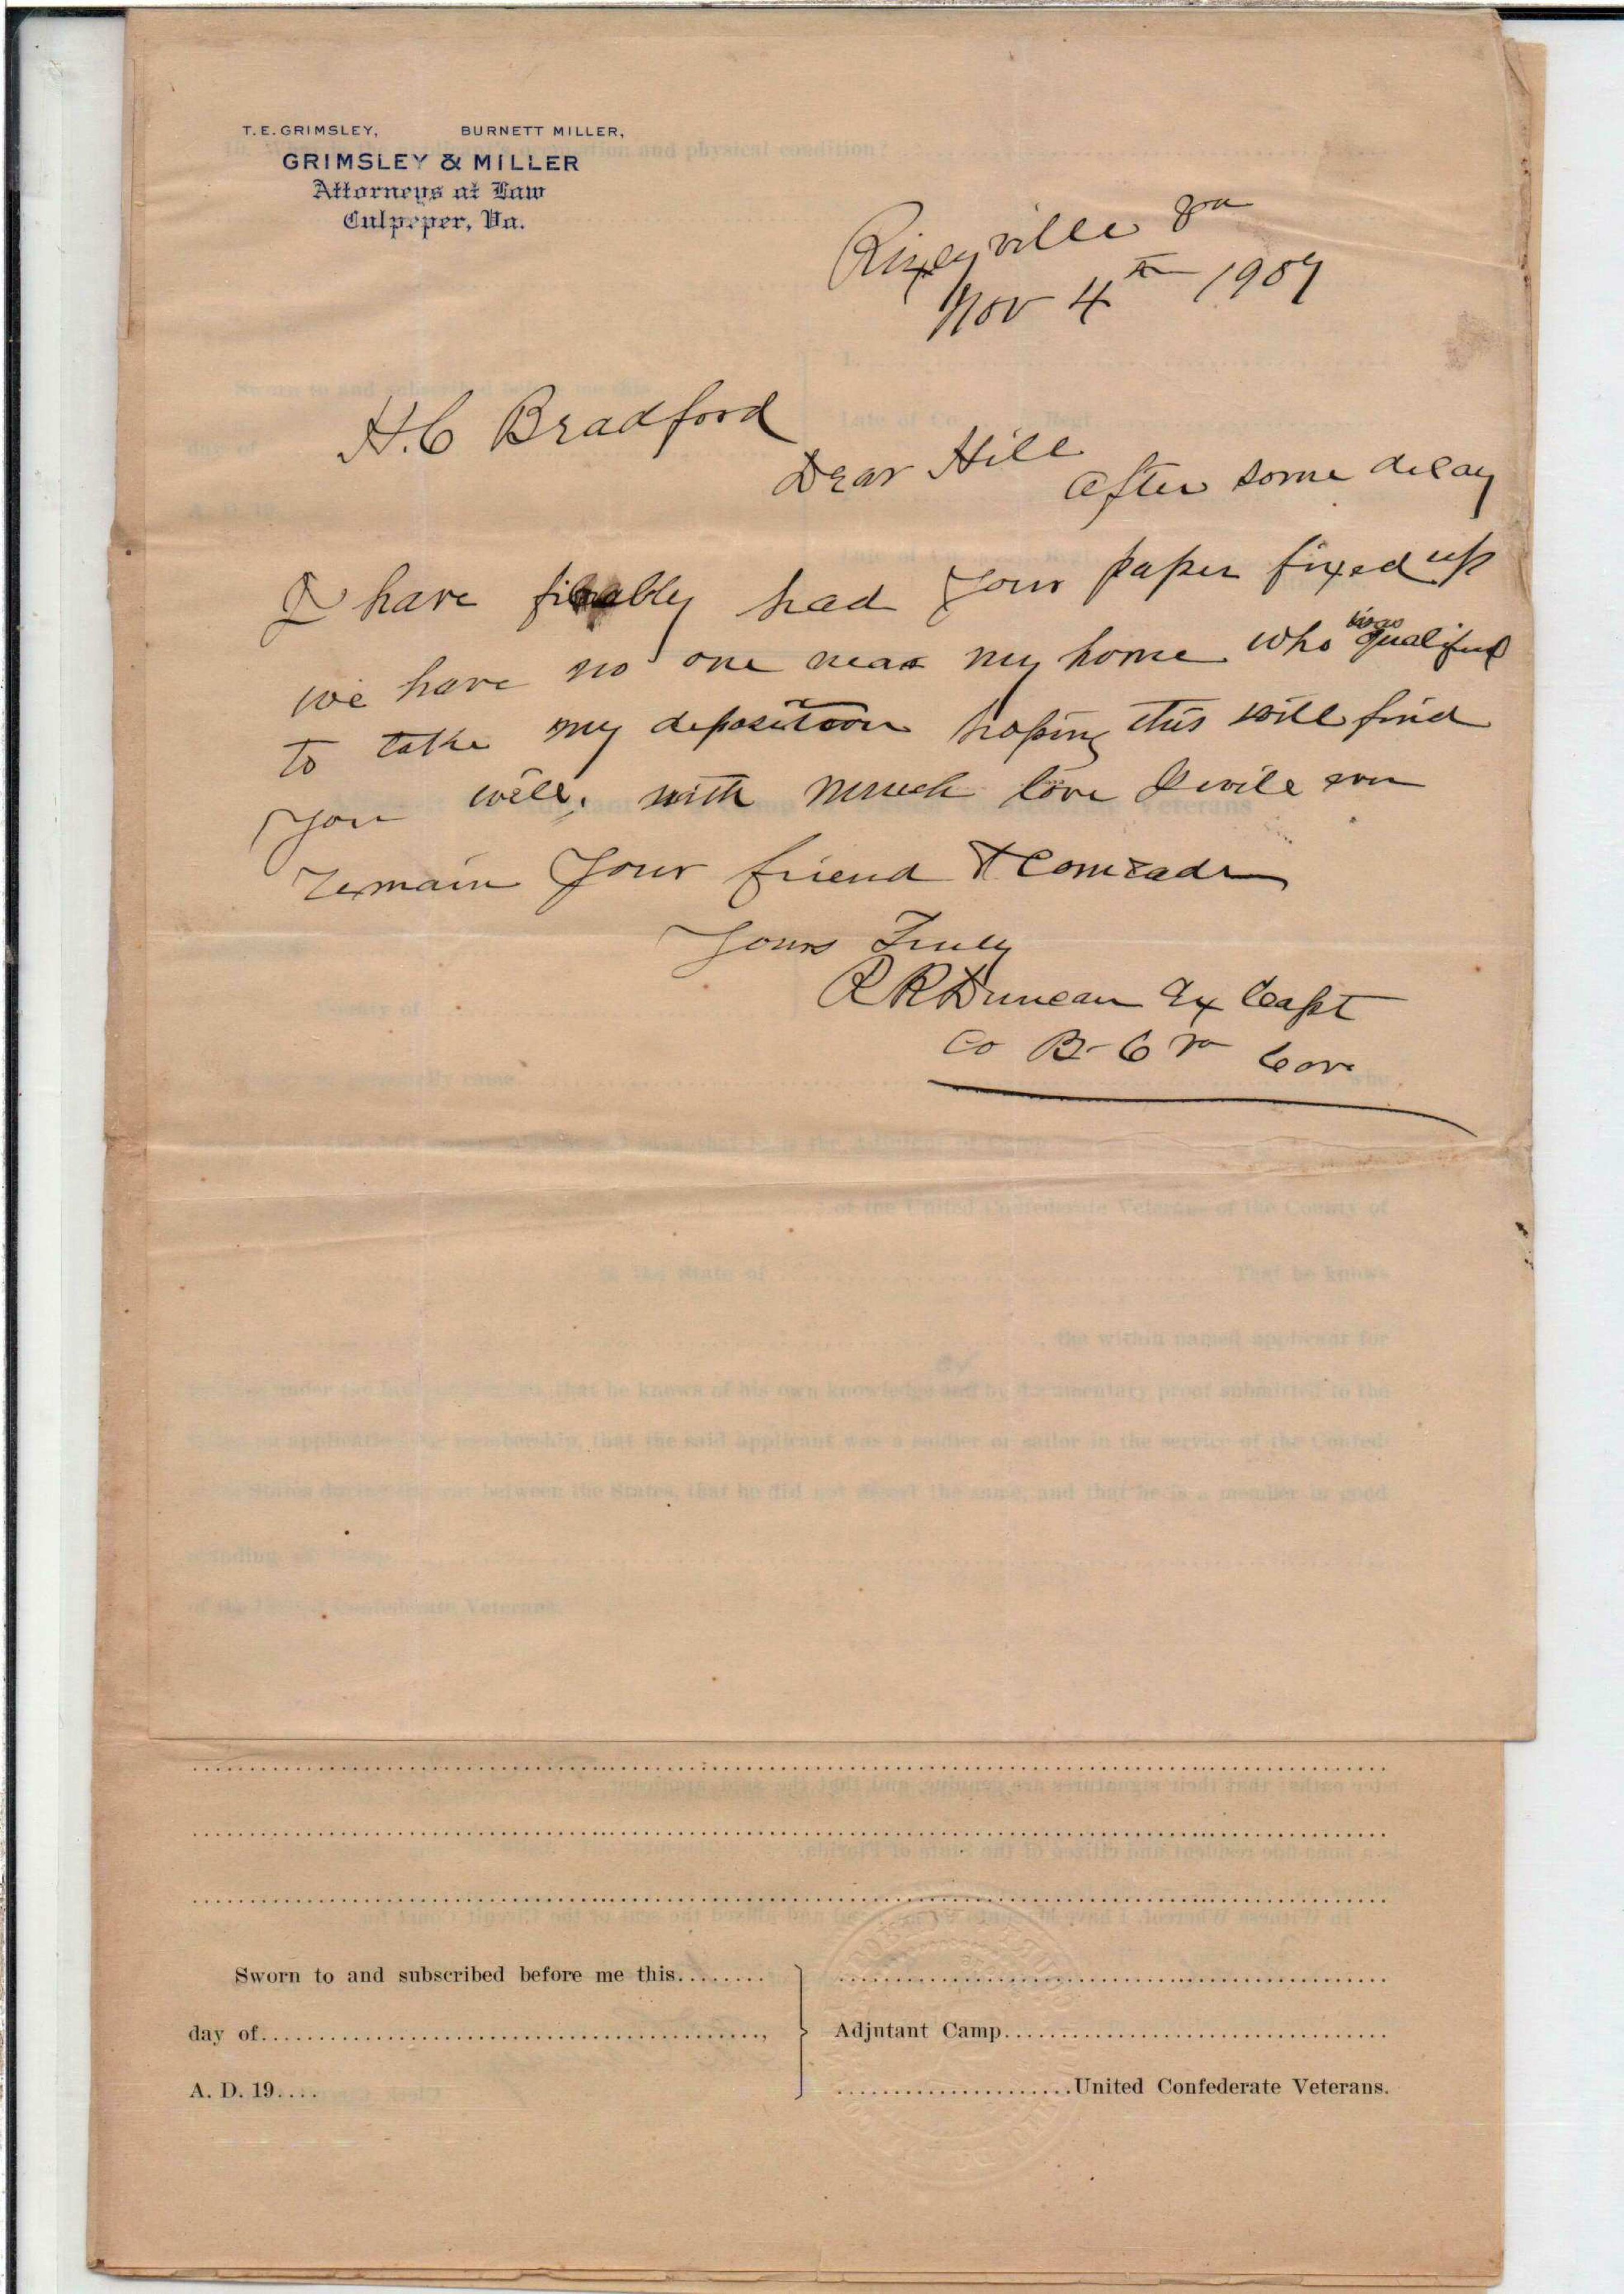 T. E. GRIMSLEY, BURNETT MILLER,
GRIMSLEY & MILLER
Attorneys at Law
Culpeper, Va.
Rixeyville Va
Nov 4th 1907
H. C Bradford
Dear Hill
After some delay
I have finally had your paper fixed up
we have no one near my home who was qualified
to take my deposition hoping this will find
you well. with much love I will ever
remain your friend & Comrade
Yours Truly
R R Duncan Ex Capt
Co B- 6 Va Cav
of the United Confederate Veterans of the County of
in the State of That he knows
the within named applicant for
Sworn to and subscribed before me this........
day of..............................................,
A. D. 19....
Adjutant Camp...................................
......................United Confederate Veterans.